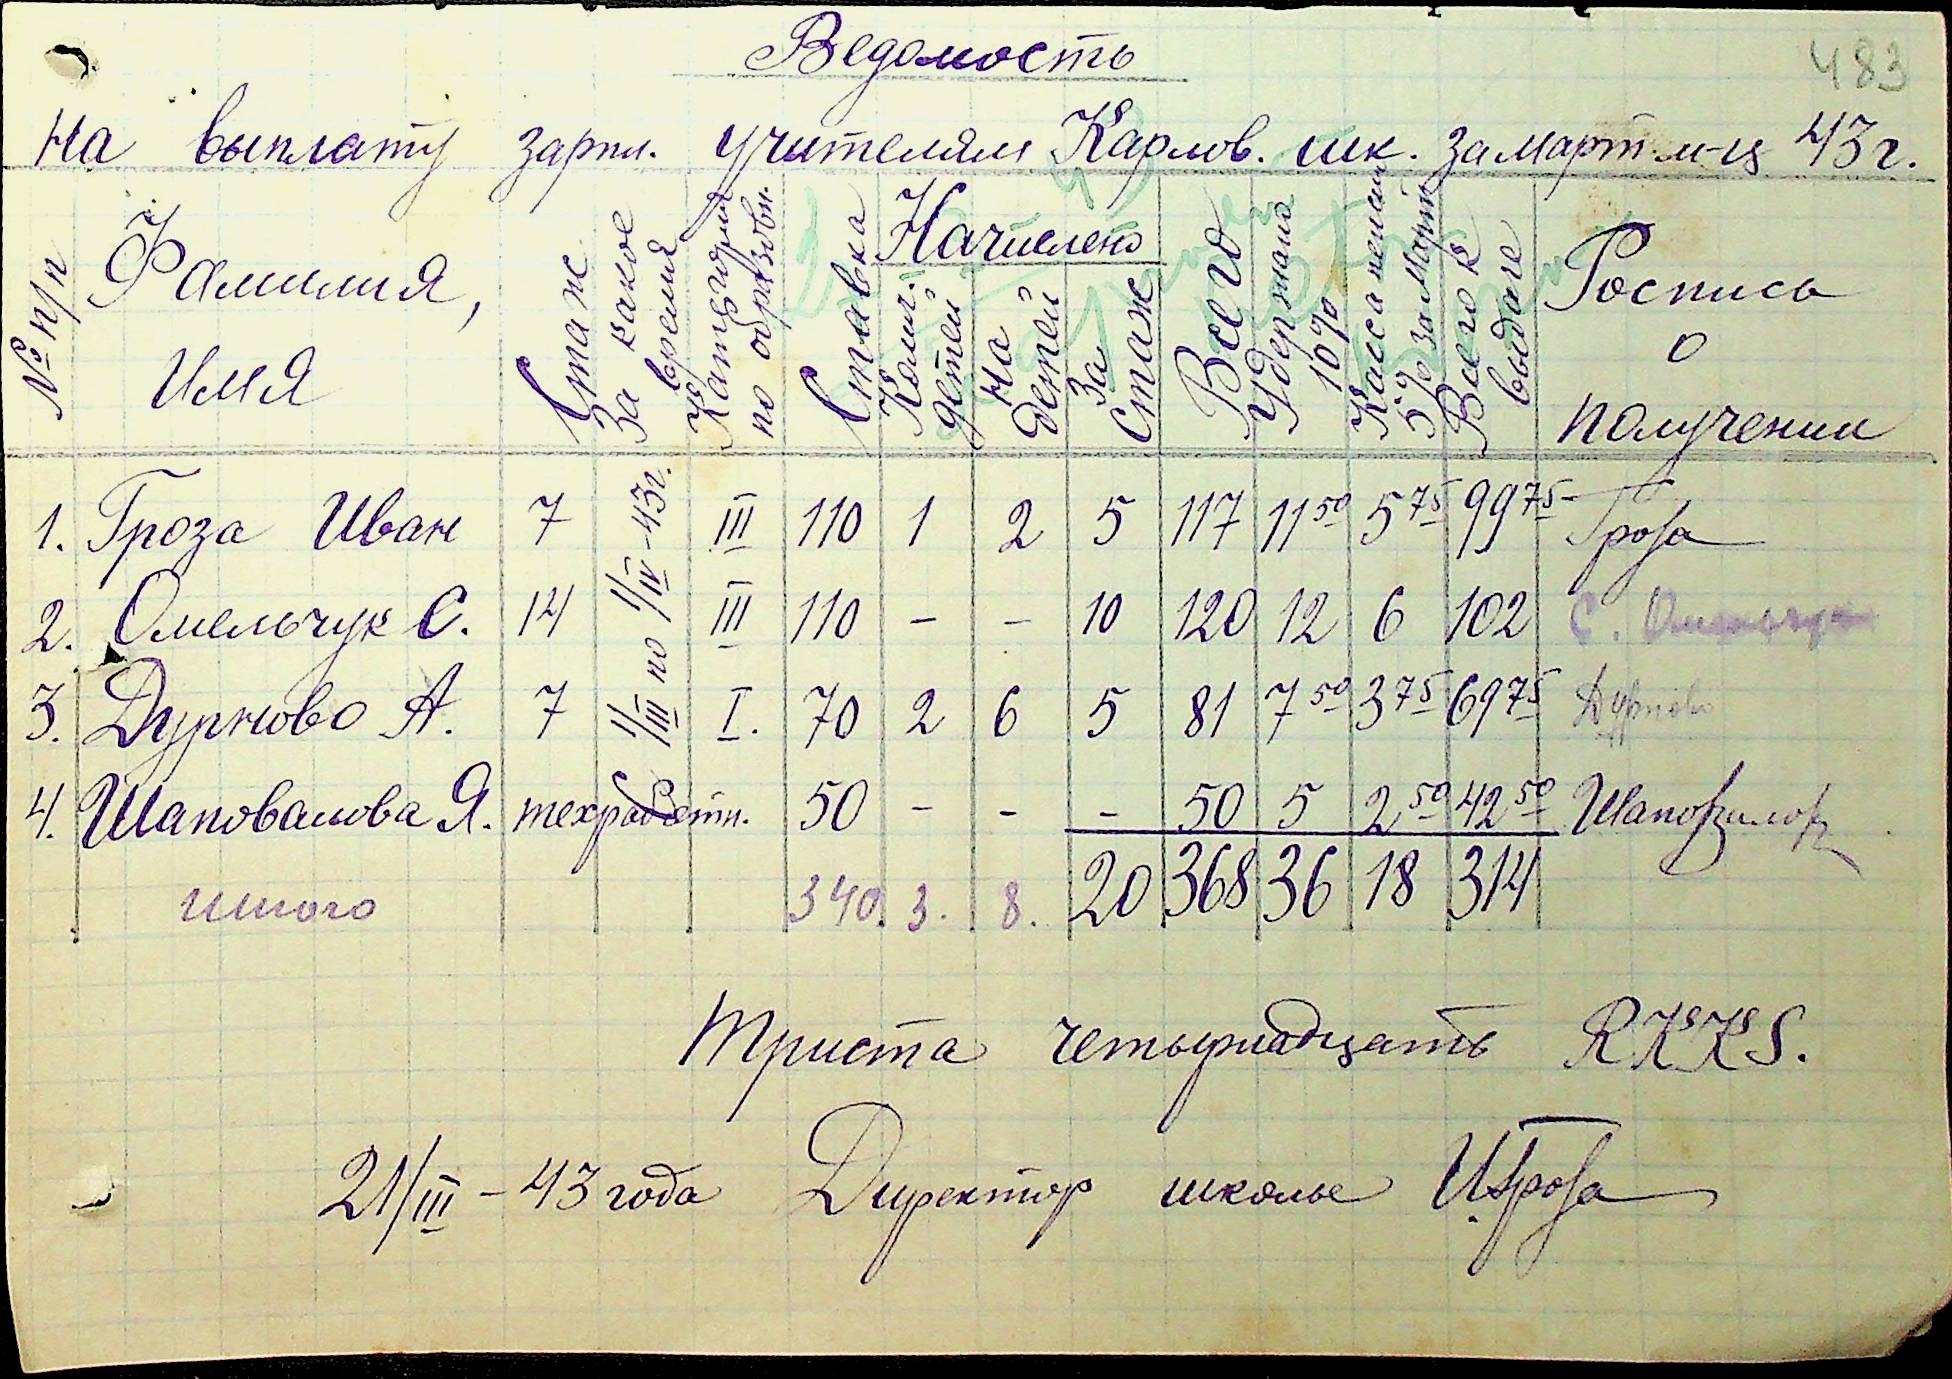 483
Ведомость
На выплату зарпл. учителям Карлов. шк. за март м-ц 43 г.
№ п/п Фамилия, Имя Стаж За какое время Категория по образовн. Ставка Начислено Колич. детей На детей За стаж Всего Удержано 10% Касса пенсий 5% за март Всего к выдаче Роспись о получении
1. Гроза Иван 7 1/III по 1/IV-43г. III 110 1 2 5 117 11 50 5 75 99 75 Гроза
2. Омельчук С. 14 III 110 - - 10 120 12 6 102 С. Омельчук
3. Дурново А. 7 I. 70 2 6 5 81 7 50 3 75 69 75 Дурново
4. Шаповалова Я. техработн. 50 - - - 50 5 2 50 42 50 Шаповалов
Итого 340. 3. 8. 20 368 36 18 314
Триста четырнадцать RKKS.
21/III - 43 года Директор школы И.Гроза